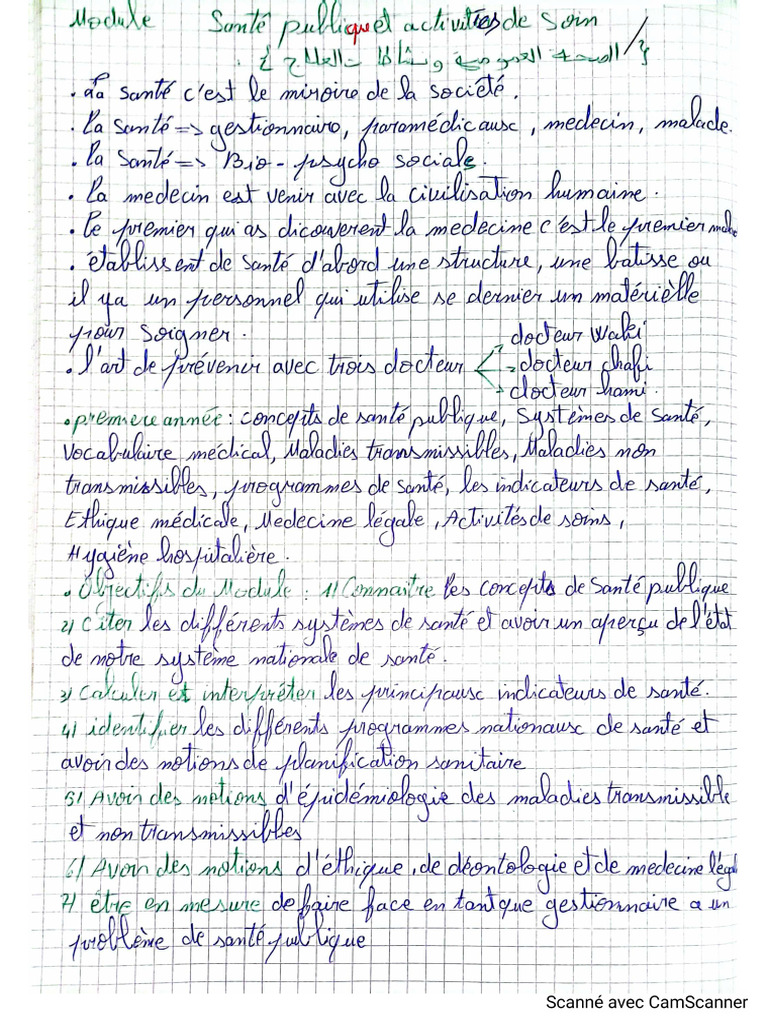 Module Santé publique et activités de soin
{ الصحة العمومية و نشاطات العلاج }
. La santé c'est le miroire de la société.
. La santé => gestionnairo, paramédicause, medecin, malade.
. la santé => Bio - psycho sociale.
. La medecin est venir avec la civilisation humaine.
. Le premier qui as dicouverent la medecine c'est le premier
. établissent de santé d'abord une structure, une bâtisse ou
il ya un personnel qui utilise se dernier un matérièlle
pour soigner.
. l'art de prévenir avec trois docteur
docteur Waki
docteur chafi
docteur hami.
. première année : concepts de santé publique, Systèmes de Santé,
Vocabulaire médical, Maladies transmissibles, Maladies non
transmissibles, programmes de santé, les indicateurs de santé,
Ethique médicale, Medecine légale, Activités de soins,
Hygiène hospitalière.
. Objectifs du Module : 1) Connaitre les concepts de Santé publique
2) Citer les différents systèmes de santé et avoir un aperçu de l'état
de notre système nationale de santé.
3) Calculer et interpréter les principause indicateurs de santé.
4) identifier les différents programmes nationause de santé et
avoir des notions de planification sanitaire
5) Avoir des notions d'épidémiologie des maladies transmissible
et non transmissibles
6) Avoir des notions d'éthique, de déontologie et de medecine
7) être en mesure de faire face en tant que gestionnaire a un
problème de santé publique
Scanné avec CamScanner